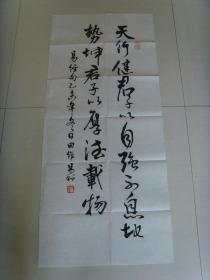 天行健君子以自强不息地
势坤君子以厚德载物
易经句己未年冬日田作